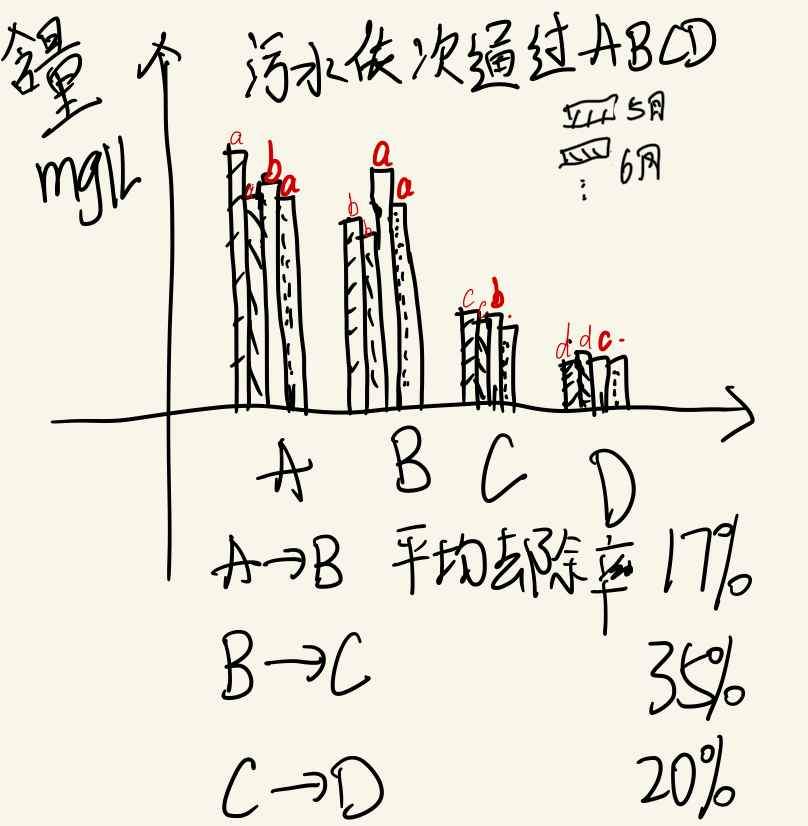 含量
mg/L
污水依次通过ABCD
5月
6月
⋮
a a b a
b b a a
c c b .
d d c .
A B C D
A→B 平均去除率 17%
B→C 35%
C→D 20%